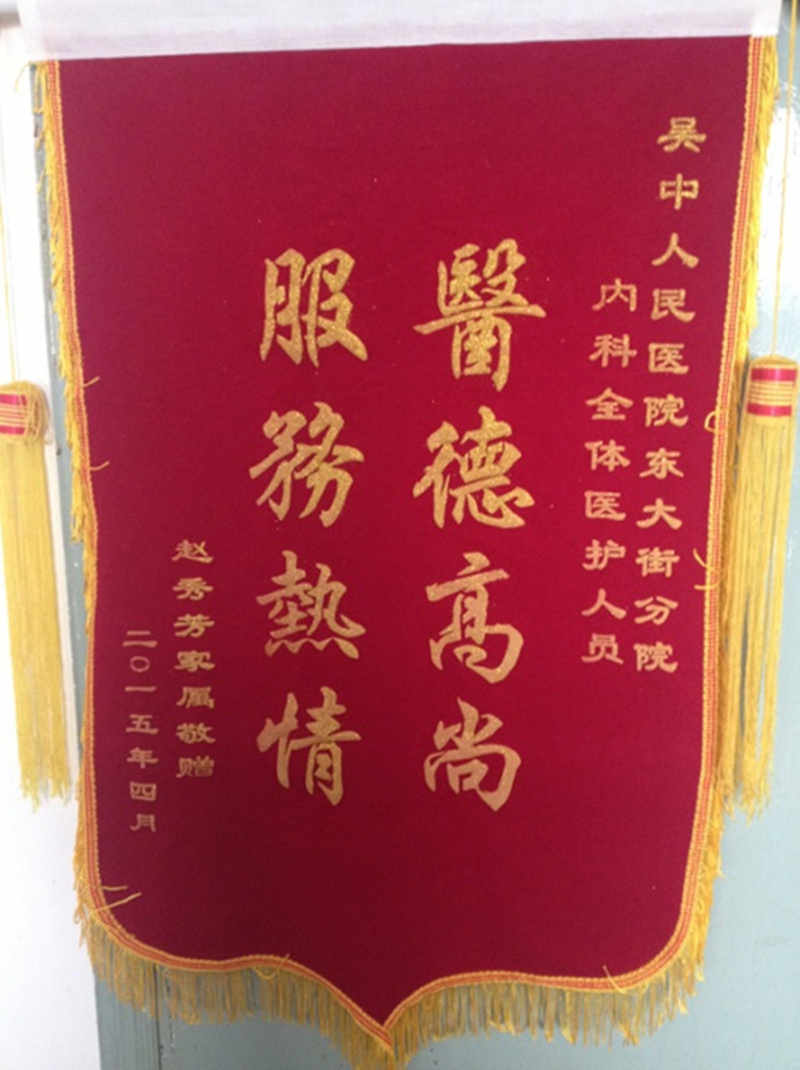 吴中人民医院东大街分院
内科全体医护人员
醫德高尚
服務熱情
赵秀芳家属敬赠
二〇一五年四月